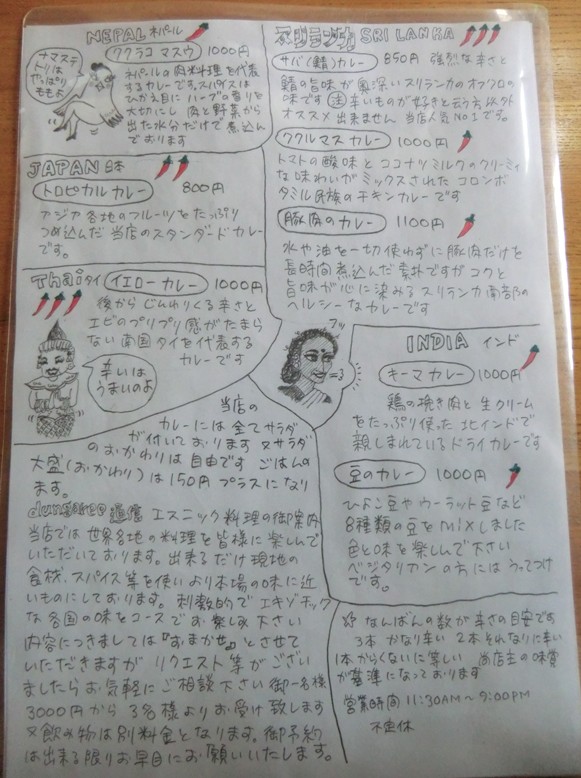 NEPAL ネパール
ククラコ マスウ 1000円
ナマステ
トリは
やっぱり
ももよ
ネパールの肉料理を代表
するカレーです。スパイスは
ひかえ目に ハーブの香りを
大切にし 肉と野菜から
出た水分だけで煮込ん
でおります
JAPAN 日本
トロピカルカレー 800円
アジア各地のフルーツをたっぷり
つめ込んだ 当店のスタンダードカレー
です。
Thai タイ イエローカレー 1000円
後から じんわりくる辛さと
エビのプリプリ感がたまら
ない 南国タイを代表する
カレーです
辛いは
うまいのよ
スリランカ SRI LANKA
サバ(鯖)カレー 850円 強烈な辛さと
鯖の旨味が奥深いスリランカのオフクロの
味です 注 辛いものが好きと云う方以外
オススメ出来ません 当店人気No1です。
ククルマスカレー 1000円
トマトの酸味とココナツミルクのクリーミィ
な味わいがミックスされたコロンボ
タミル民族のチキンカレーです
豚肉のカレー 1100円
水や油を一切使わずに豚肉だけを
長時間煮込んだ素朴ですがコクと
旨味が心に染みるスリランカ南部の
ヘルシーなカレーです
フッ
INDIA インド
キーマカレー 1000円
鶏の挽き肉と生クリーム
をたっぷり使った北インドで
親しまれているドライカレーです
豆のカレー 1000円
ひよこ豆やウーラット豆など
8種類の豆をmixしました
色と味を楽しんで下さい
ベジタリアンの方にはうってつけ
です。
当店の
カレーには全てサラダ
が付いております 又サラダ
のおかわりは自由です ごはんの
大盛(おかわり)は150円プラスになり
ます。
dungaree 通信 エスニック料理の御案内
当店では世界各地の料理を皆様に楽しんで
いただいております。出来るだけ現地の
食材、スパイス等を使いより本場の味に近
いものにしております。刺激的でエキゾチック
な各国の味をコースでお楽しみ下さい
内容につきましては『おまかせ』とさせて
いただきますが リクエスト等がござい
ましたらお気軽にご相談下さい御一名様
3000円から 3名様よりお受け致します
又飲み物は別料金となります。御予約
は出来る限りお早目にお願いいたします。
☆なんばんの数が辛さの目安です
3本 かなり辛い 2本 それなりに辛い
1本からくないに等しい 当店主の味覚
が基準になっております
営業時間 11:30AM〜9:00PM
不定休